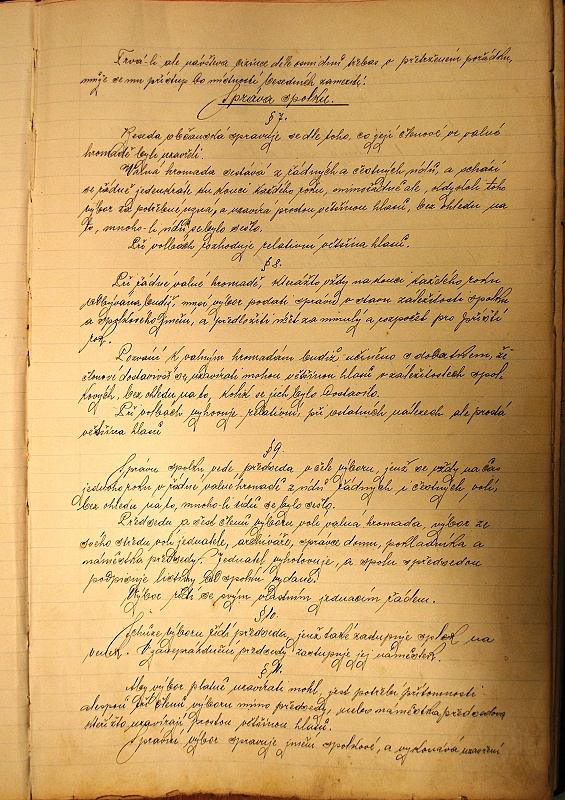 Trvá-li ale návštěva delší osmi dnů třebas o přetrženém pořádku,
může se mu přístup do místností besedních zameziti.
Správa spolku.
§ 7.
Beseda občanská spravuje se dle toho, co její členové ve valné
hromadě byli uzavřeli.
Valná hromada sestává z řádných a čestných údů, a schází
se řádně jedenkrát ku konci každého roku, mimořádně ale, kdykoli toho
výbor za potřebné uzná, a uzavírá prostou většinou hlasů, bez ohledu na
to, mnoho-li údů se bylo sešlo.
Při volbách rozhoduje relativní většina hlasů.
§ 8.
Při řádné valné hromadě, kterážto vždy na konci každého roku
odbývána budiž, musí výbor podati zprávu o stavu záležitostí spolku
a spolkového jmění, a předložiti účet za minulý a rozpočet pro příští
rok.
Pozvání k valným hromadám budiž učiněno s dodatkem, že
členové dostavivší se, uzavírati mohou většinou hlasů o záležitostech spol-
kových, bez ohledu na to, kolik se jich bylo dostavilo.
Při volbách vyhovuje relativní, při ostatních nálezech ale prostá
většina hlasů
§ 9.
Správu spolku vede předseda v čele výboru, jenž se vždy na čas
jednoho roku v řádné valné hromadě z údů řádných i čestných volí,
bez ohledu na to, mnoho-li údů se bylo sešlo.
Předsedu a šest členů výboru volí valná hromada, výbor ze
svého středu volí jednatele, archiváře, správce domu, pokladníka a
náměstka předsedy. Jednatel vyhotovuje, a spolu s předsedou
podpisuje listiny od spolku vydané.
Výbor řídí se svým vlastním jednacím řádem.
§ 10.
Schůze výboru řídí předseda, jenž také zastupuje spolek na
venek. V zaneprázdnění předsedy zastupuje jej náměstek.
§ 11.
Aby výbor platně uzavírati mohl, jest potřebí přítomnosti
alespoň členů výboru mimo předsedy, nebo náměstka předsedova
kteřížto uzavírají prostou většinou hlasů.
Správní výbor spravuje jmění spolkové, a vykonává uzavření